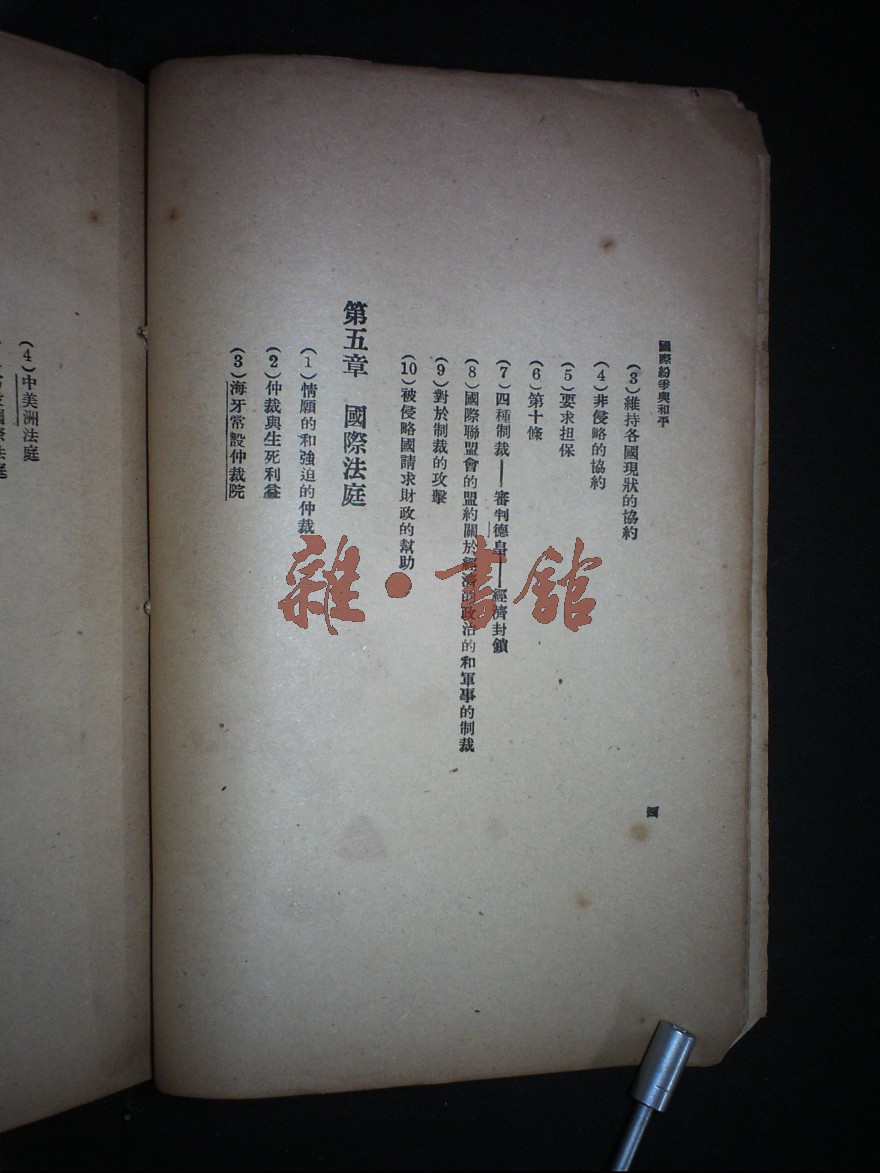 國際紛爭與和平
(3)維持各國現狀的協約
(4)非侵略的協約
(5)要求担保
(6)第十條
(7)四種制裁——審判德皇——經濟封鎖
(8)國際聯盟會的盟約關於經濟的政治的和軍事的制裁
(9)對於制裁的攻擊
(10)被侵略國請求財政的幫助
第五章 國際法庭
(1)情願的和強迫的仲裁
(2)仲裁與生死利益
(3)海牙常設仲裁院
四
(4)中美洲法庭
國際法庭
雜·書館